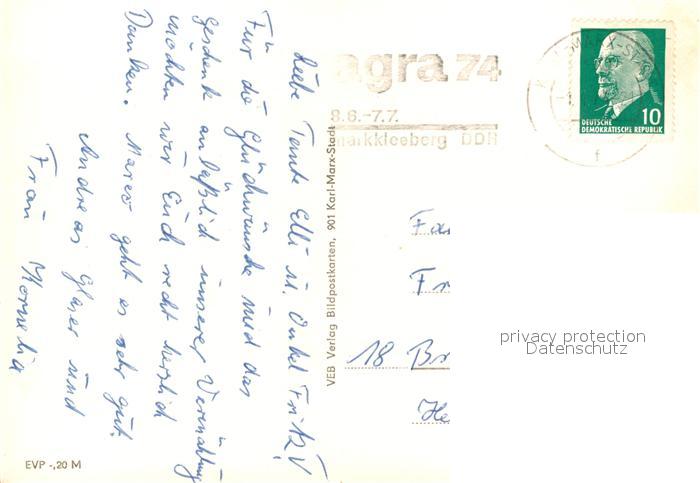 Liebe Tante Elli u. Onkel Fritz!
Für die Glückwünsche und das
Geschenk anläßlich unserer Vermählung
möchten wir Euch recht herzlich
Danken. Marco geht es sehr gut.
Andreas Glaser und
Frau Kornelia
EVP -,20 M
VEB Verlag Bildpostkarten, 901 Karl-Marx-Stadt
agra 74
8.6.-7.7.
markkleeberg DDR
f
10
DEUTSCHE
DEMOKRATISCHE REPUBLIK
Fa
Fr
18 Br
He
privacy protection
Datenschutz